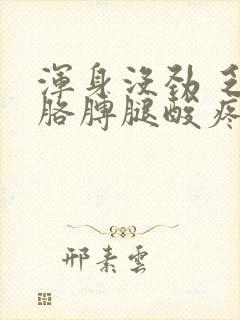 渾身沒勁
胳膊腿酸疼
邢素雲